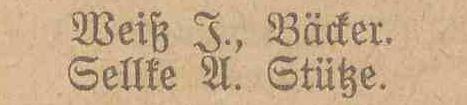 Weiß J., Bäcker.
Sellke A. Stütze.